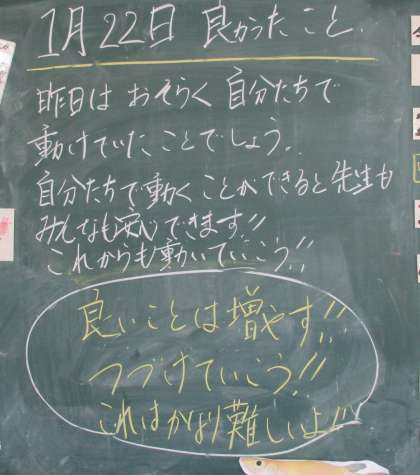 1月22日 良かったこと.
昨日は おそらく 自分たちで
動けていたことでしょう.
自分たちで動くことができると先生も
みんなも安心できます!!
これからも動いていこう!!
良いことは増やす!!
つづけていこう!!
これはかなり難しいよ!!